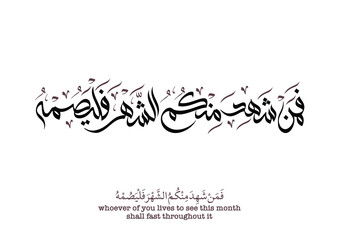 فَمَن شَهِدَ مِنكُمُ الشَّهْرَ فَلْيَصُمْهُ
فَمَنْ شَهِدَ مِنْكُمُ الشَّهْرَ فَلْيَصُمْهُ
whoever of you lives to see this month
shall fast throughout it